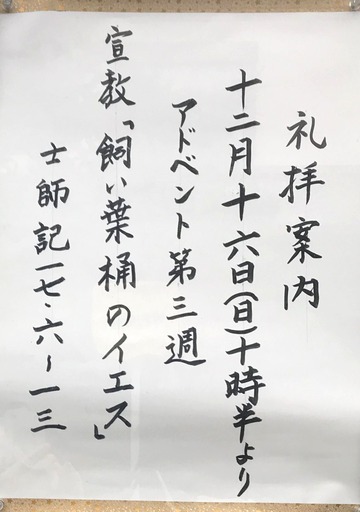 礼拝案内
十二月十六日(日)十時半より
アドベント第三週
宣教「飼い葉桶のイエス」
士師記一七・六〜一三